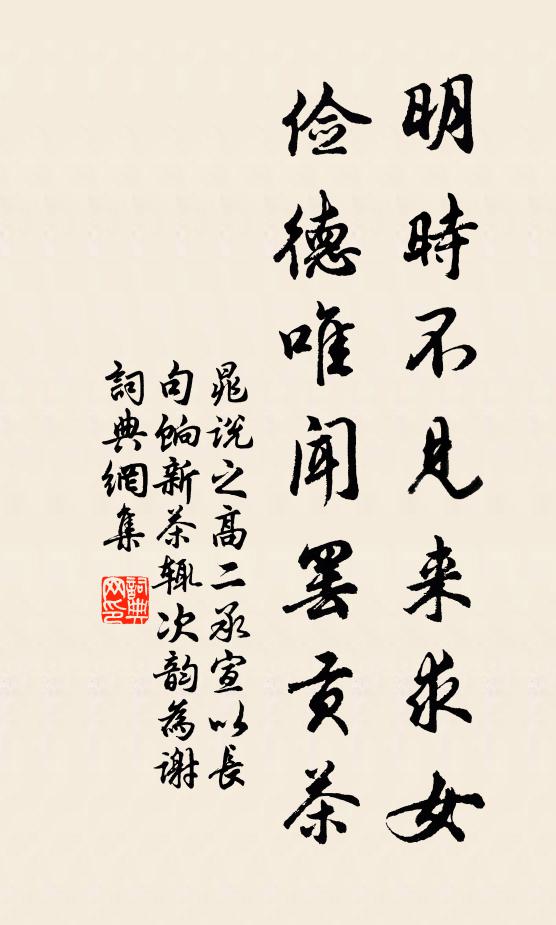 明時不見来求女
儉德唯聞罷貢茶
晁説之高二承宣以長
句餉新茶輒次韵為謝
詞典網集
詞典網印